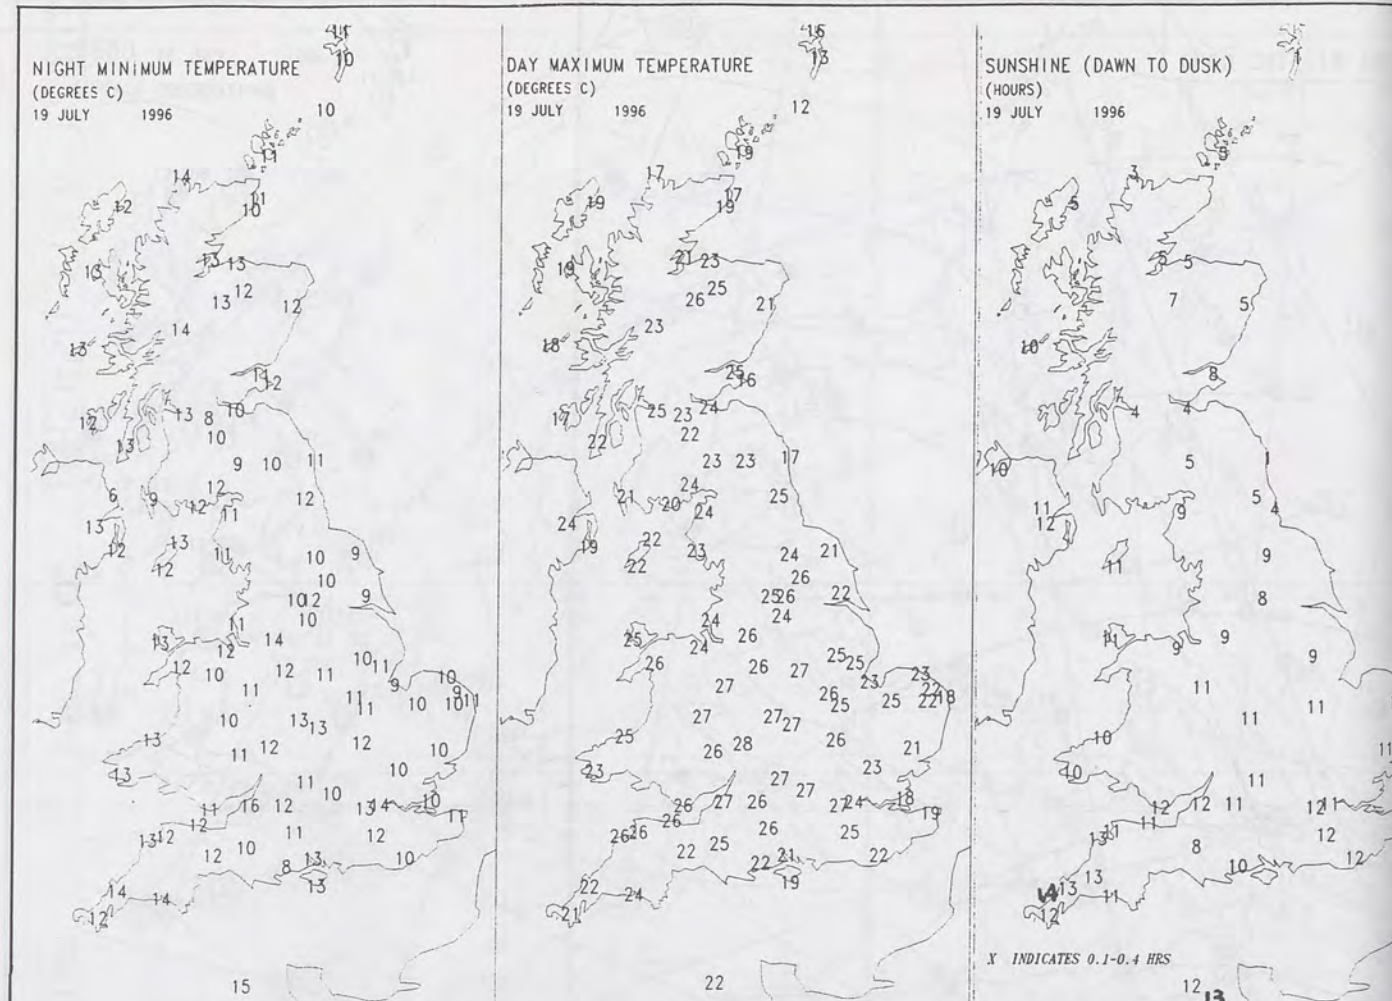 NIGHT MINIMUM TEMPERATURE
(DEGREES C)
19 JULY 1996
11
10
10
11
14
11
10
12
13 13
13
12
13 12
14
13
11
12
10
13 8
12
10
13
9 10 11
12
6 9 12
12
11
13
13
12 11 10 9
12
10
10 12 9
10
11
13 14
12
12 12 10
10 11 11
9 10
11 9
11 10 10 11
11
10 13
13
13 12 12
11 10
13 10
11
10
11 16 12 13 14 10
11
12
13 12 11 12
10
12 13 10
8
13
14 14
12
15
DAY MAXIMUM TEMPERATURE
(DEGREES C)
19 JULY 1996
16
13
12
19
17
17
19 19
21 23
19
25
26 21
23
18
25
16
24
17 25 23
22
22
23 23 17
24
21 20 25
24
24
19 22 23 24 21
22
26
25 26 22
24
24
25 26
24
25
26 26 27 25
23
27 23 22
26
25 25 22 18
27 27
27
25 28 26
26 21
23 23
27
27
26 27 26 27 24 18
19
26
26 26 26 25
25
22 21
22
22
19
22 24
21
22
SUNSHINE (DAWN TO DUSK)
(HOURS)
19 JULY 1996
1
3
5
5
7 5
10
8
4 4
10 5 1
11 5
12 9 4
11 9
8
11 9
9 9
11 11
11
10
11
10 11
12 12 11 12 11
11
13 11 12
8
10 12
13
13
14 11
12
X INDICATES 0.1-0.4 HRS
12
13